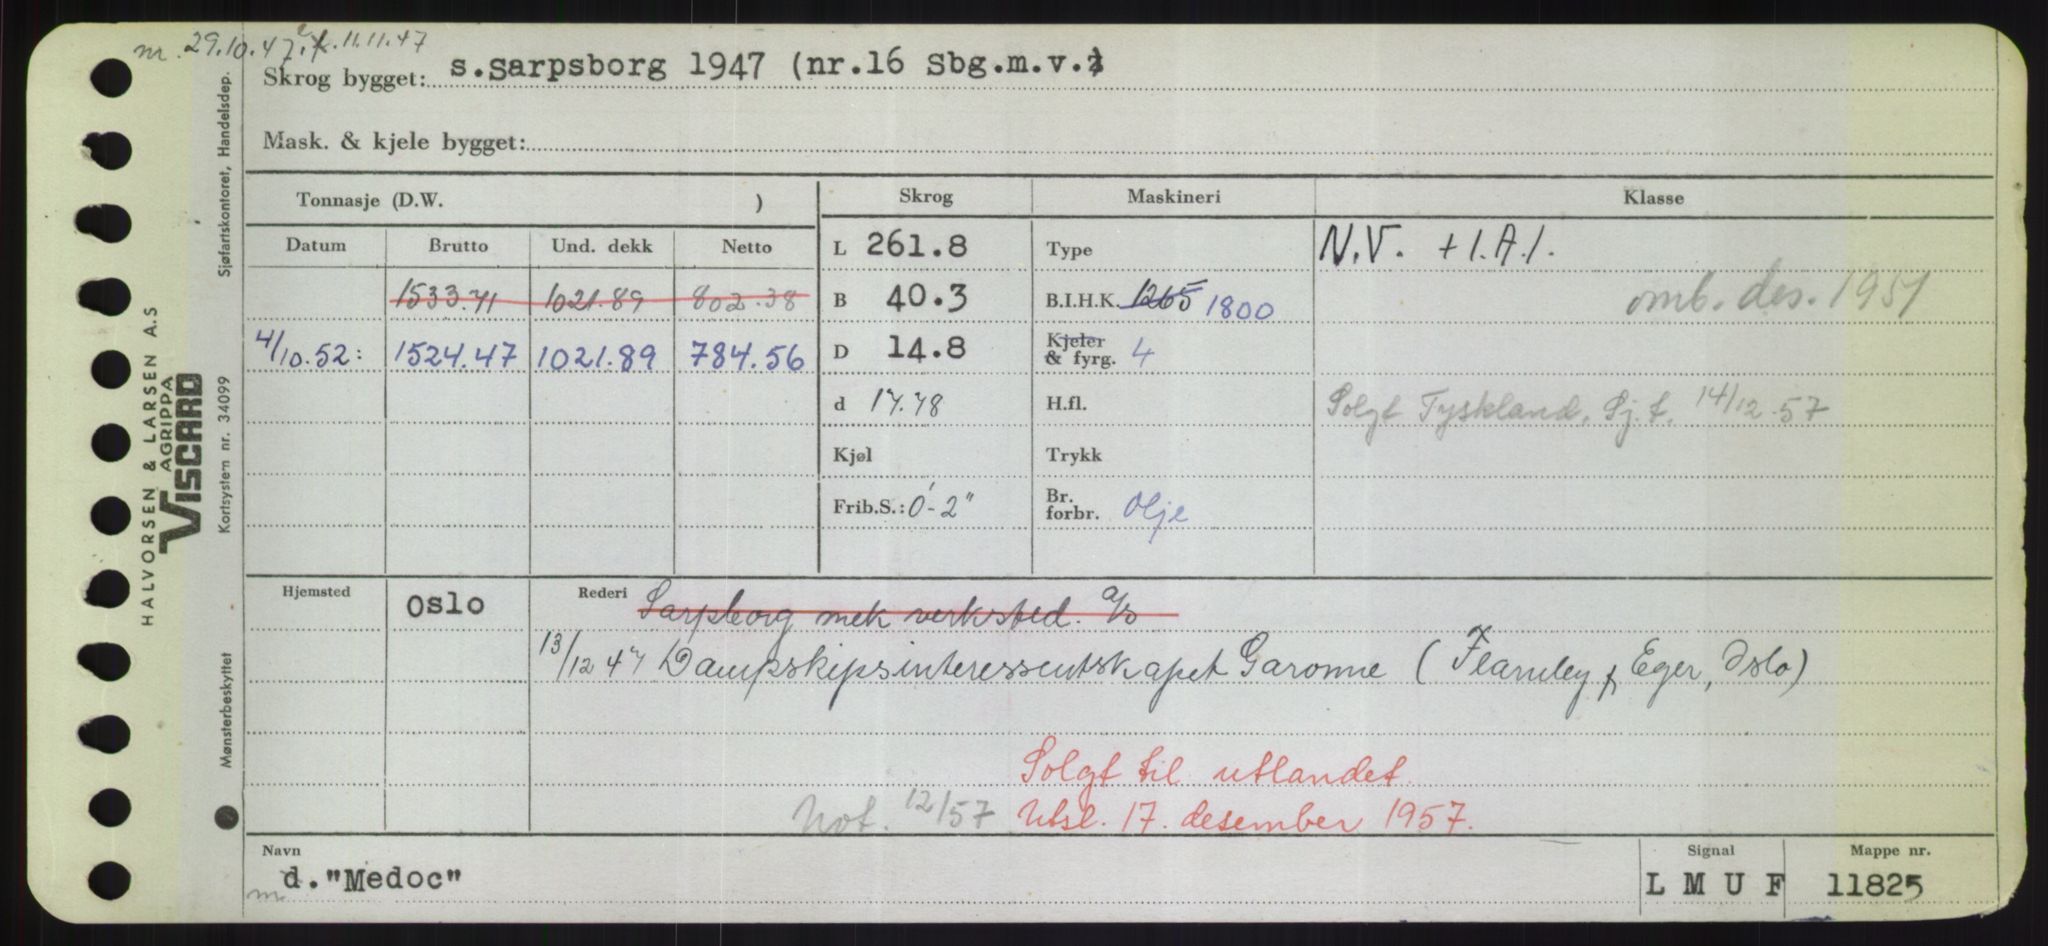 nr. 29.10.47. 11.11.47
Skrog bygget: s.Sarpsborg 1947 (nr.16 Sbg.m.v.)
Mask. & kjele bygget:
Tonnasje (D.W. ) Skrog Maskineri Klasse
Datum Brutto Und. dekk Netto L 261.8 Type N.V. +1.A.1.
1533.71 1021.89 802.38 B 40.3 B.I.H.K. 1265 1800 omb. des. 1951
4/10.52: 1524.47 1021.89 784.56 D 14.8 Kjeler & fyrg. 4
d 17.48 H.fl. Solgt Tyskland. Sj.f. 14/12.57
Kjøl Trykk
Frib.S.: 0'-2" Br. forbr. Olje
Hjemsted Oslo Rederi Sarpsborg mek verksted. a/s
13/12 47 Dampskipsinteressentskapet Garonne (Fearnley & Eger, Oslo)
Solgt til utlandet.
Not. 12/57 Utsl. 17. desember 1957.
Navn Signal Mappe nr.
m d. "Medoc" L M U F 11825
HALVORSEN & LARSEN A.S
AGRIPPA
VISCARD
Sjøfartskontoret, Handelsdep.
Kortsystem nr. 34099
Mønsterbeskyttet